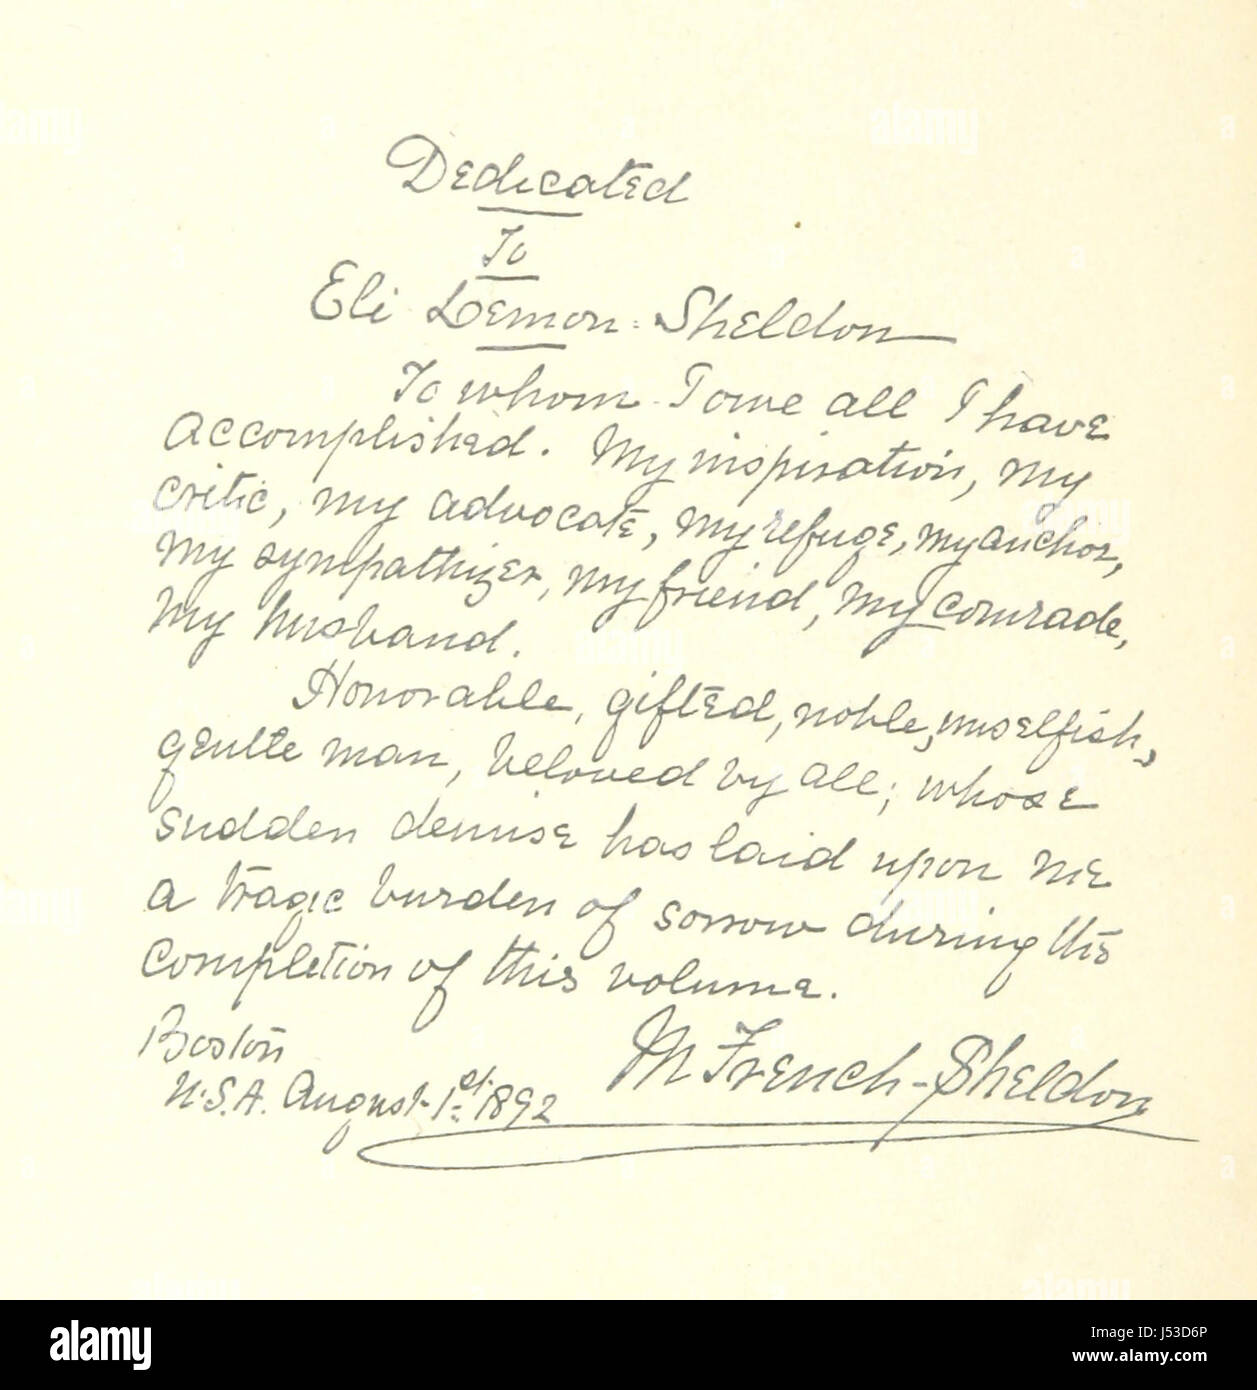 Dedicated
To
Eli Lemon-Sheldon
To whom I owe all I have
accomplished. My inspiration, my
critic, my advocate, my refuge, my anchor,
my sympathizer, my friend, my comrade,
my husband.
Honorable, gifted, noble, unselfish,
gentle man, beloved by all; whose
sudden demise has laid upon me
a tragic burden of sorrow during the
completion of this volume.
Boston
U.S.A. August 1st 1892
M French-Sheldon
alamy
Image ID: J53D6P
www.alamy.com